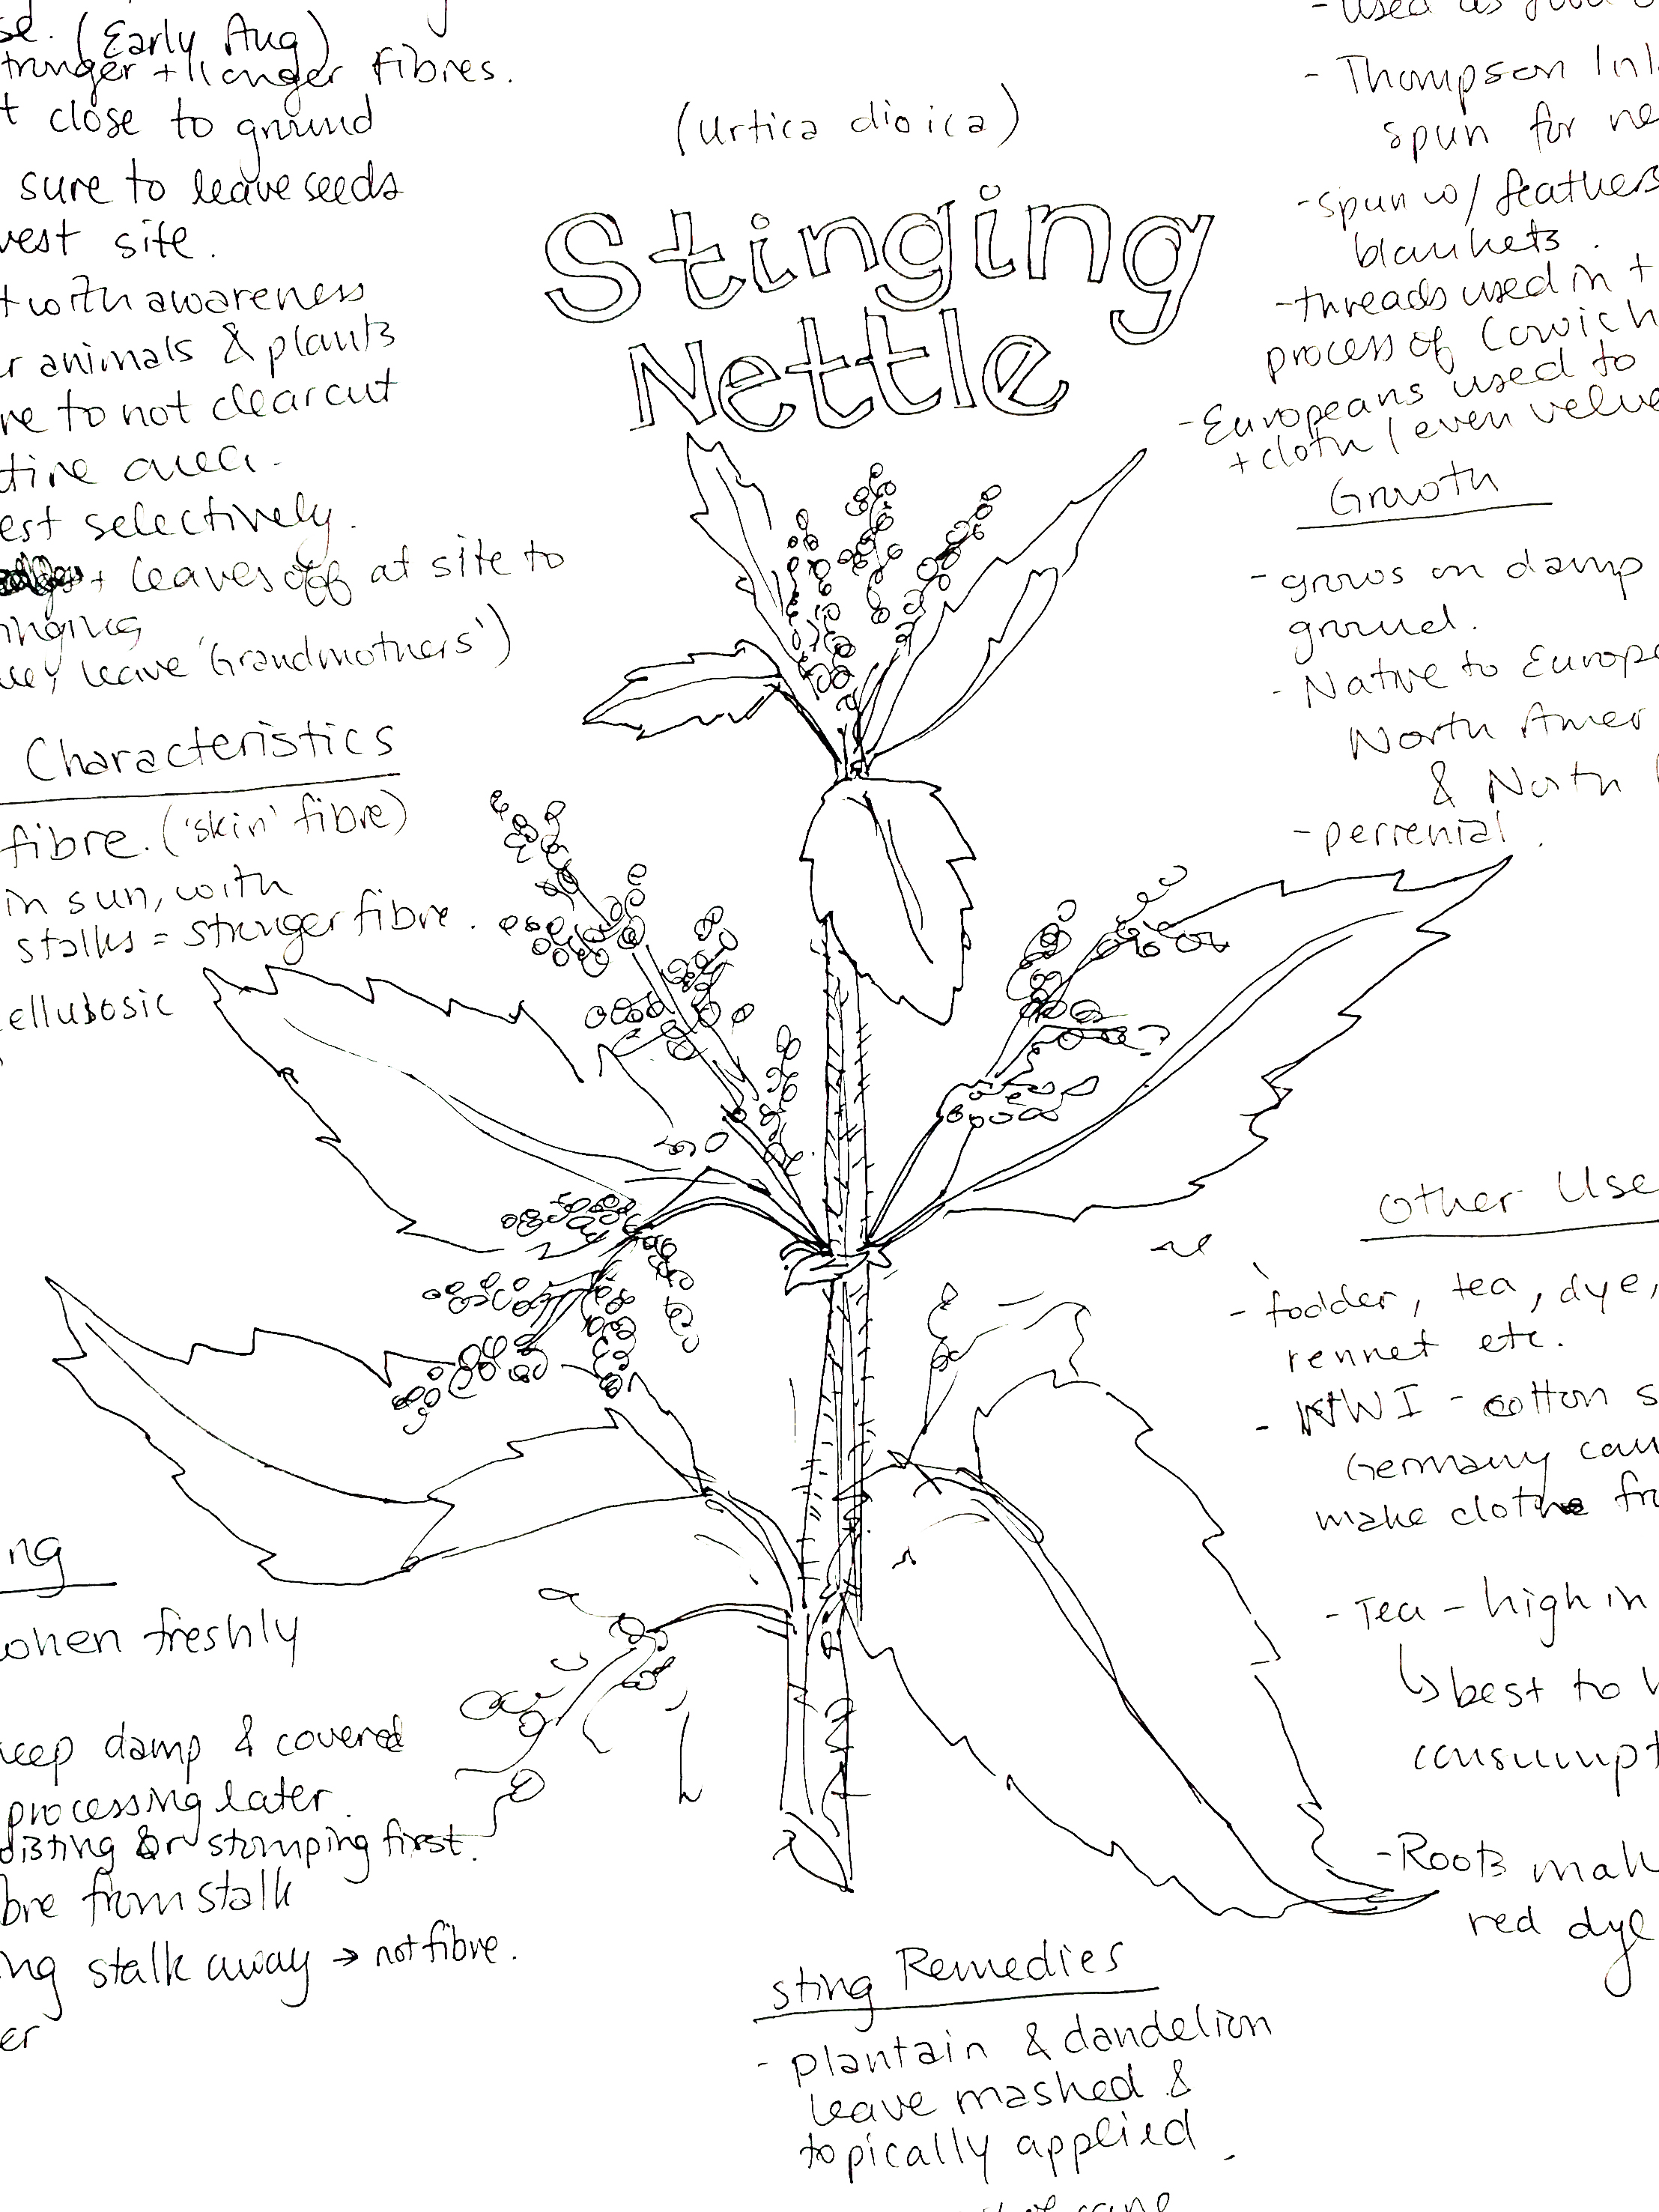 (Early Aug)
+ longer fibres.
close to ground
sure to leave seeds
site.
with awareness
animals & plants
to not clearcut
area.
selectively.
+ leaves off at site to
leave 'Grandmothers')
Characteristics
fibre. ('skin' fibre)
in sun, with
stalks = stronger fibre.
ellulosic
ng
when freshly
keep damp & covered
processing later.
or stomping first.
from stalk
stalk away → not fibre.
er
(Urtica dioica)
Stinging
Nettle
- used as food
- Thompson
spun for ne
- spun w/ feathers
blankets.
- threads used in +
process of Cowich
- Europeans used to
+ cloth / even velve
Growth
- grows on damp
ground.
- Native to Europe
North Amer
& North
- perrenial.
Other Use
- fodder, tea, dye,
rennet etc.
- WWI - cotton s
Germany cau
make clothe fr
- Tea - high in
↳ best to
consumpt
- Roots mak
red dye
sting Remedies
- plantain & dandelion
leave mashed &
topically applied.